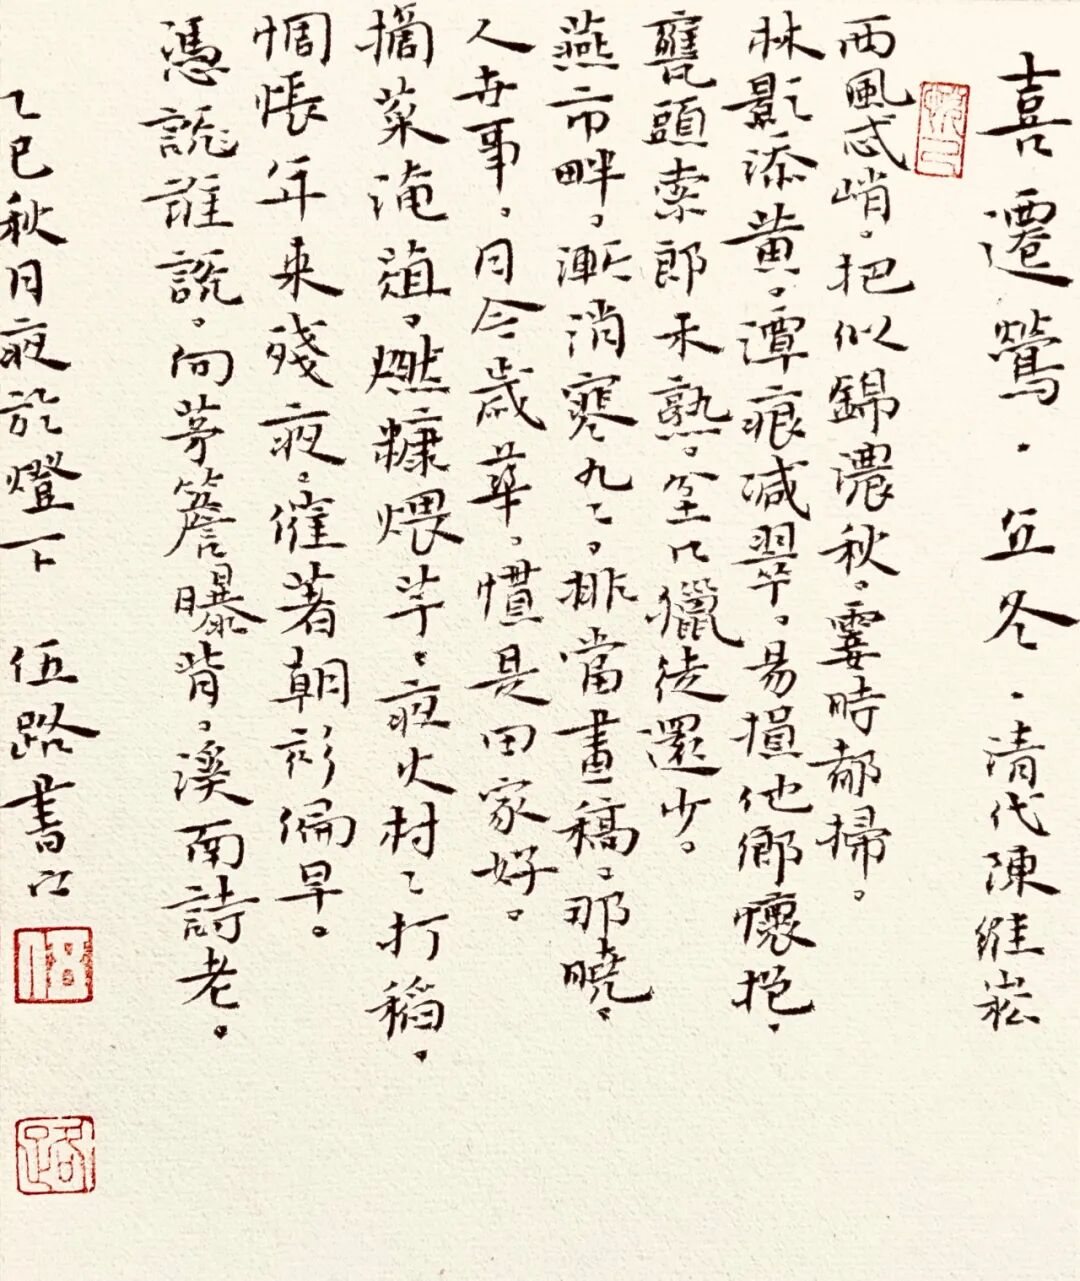 喜遷鶯·立冬·清代陳維崧
西風忒峭。把似錦濃秋。霎時都掃。
林影添黃。潭痕減翠。易損他鄉懷抱。
甕頭索郎未熟。口獵徒還少。
燕市畔。漸消寒九〻。排當畫稿。那曉。
人世事。月令歲華。慣是田家好。
摘菜淹葅。燃糠煨芋。夜火村〻打稻。
惆悵年來殘夜。催著朝衫偏早。
憑說誰說。向茅簷曝背。溪南詩老。
乙巳秋月夜於燈下 伍路書
伍
路